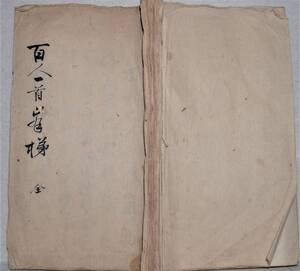 百人一首峯梯 全